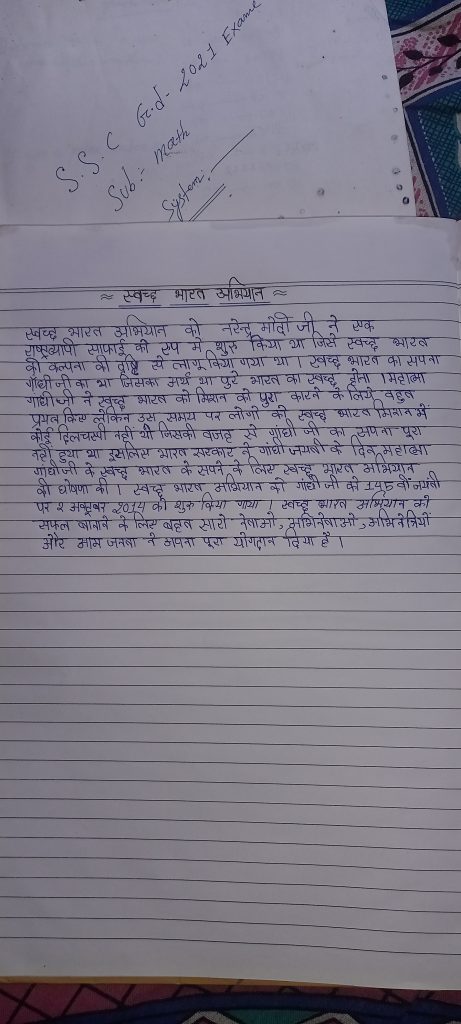 S.S.C G.d - 2021 Exame
Sub:- math
System:-
≈ स्वच्छ भारत अभियान ≈
स्वच्छ भारत अभियान को नरेन्द्र मोदी जी ने एक
राष्ट्रव्यापी साफाई की रुप में शुरु किया था जिसे स्वच्छ भारत
की कल्पना की दृष्टि से लागू किया गया था । स्वच्छ भारत का सपना
गांधी जी का था जिसका अर्थ था पुरे भारत का स्वच्छ होना । महात्मा
गांधी जी ने स्वच्छ भारत की मिशन को पुरा कारने के लिये बहुत
प्रयत्न किए लेकिन उस समय पर लोगो को स्वच्छ भारत मिशन में
कोई दिलचस्पी नही थी जिसकी वजह से गांधी जी का सपना पूरा
नही हुया था इसलिए भारत सरकार ने गांधी जयंती के दिन महात्मा
गांधी जी के स्वच्छ भारत के सपने के लिए स्वच्छ भारत अभियान
की घोषणा की । स्वच्छ भारत अभियान को गांधी जी की 145 वी जयंती
पर 2 अक्टूबर 2014 को शुरु किया गया । स्वच्छ भारत अभियान को
सफल बानाने के लिए बहुत सारो नेताओ, अभिनेताओ, अभिनेत्रियो
और आम जनता ने अपना पूरा योगदान दिया है ।